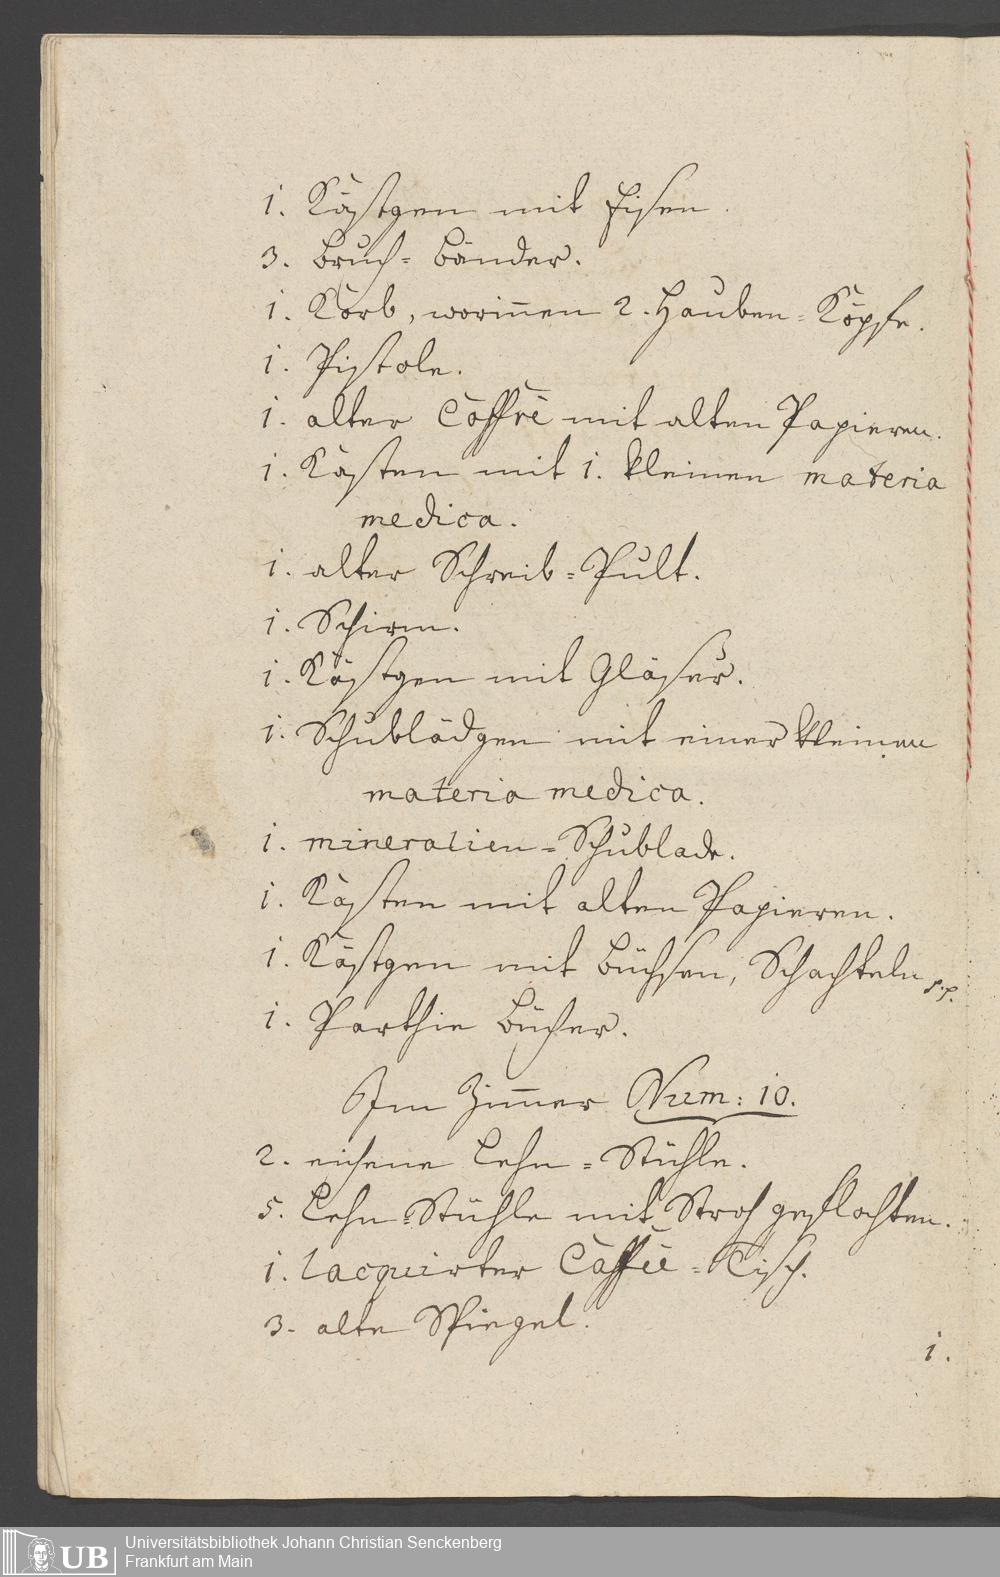 1. Kästgen mit Eisen.
3. Bruch-Bänder.
1. Korb, worin̅en 2. Hauben-Köpfe.
1. Pistole.
1. alter Coffre mit alten Papieren.
1. Kasten mit 1. kleinen materia
medica.
1. alter Schreib-Pult.
1. Schirm.
1. Kästgen mit Gläser.
1. Schublädgen mit einer kleinen
materia medica.
1. mineralien-Schublade.
1. Kasten mit alten Papieren.
1. Kästgen mit Büchsen, Schachteln p.p.
1. Parthie Bücher.
Im Zim̅er Num: 10.
2. eichene Lehn-Stühle.
5. Lehn-Stühle mit Stroh geflochten.
1. lacquirter Caffée-Tisch.
3. alte Spiegel.
1.
UB
Universitätsbibliothek Johann Christian Senckenberg
Frankfurt am Main